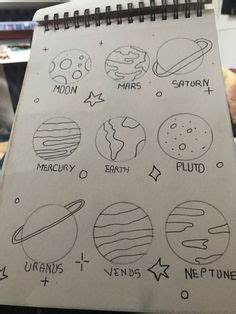 MOON MARS SATURN
MERCURY EARTH PLUTO
URANUS VENUS NEPTUNE